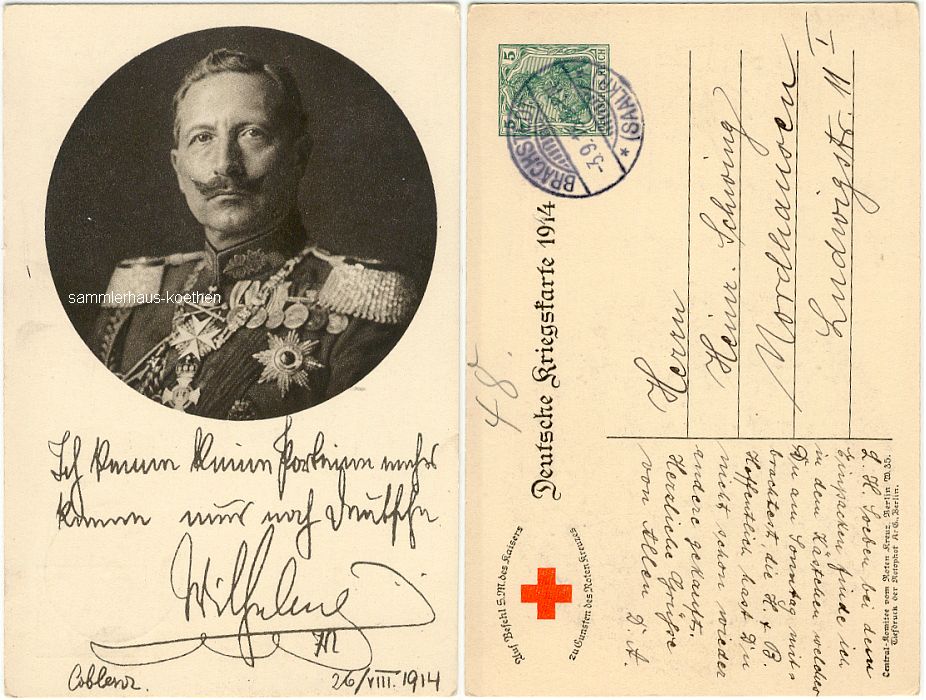 sammlerhaus-koethen
Ich kenne keine Parteien mehr
kenne nur noch Deutsche
Wilhelm
I R
Coblenz. 26/VIII. 1914
5
DEUTSCHES REICH
BRACHSTEDT
(SAALKR.)
-3.9.14
Deutsche Kriegskarte 1914
48.
Herrn
Heinr. Schwing
Nordhausen
Ludwigstr. 11 I
L. H. Soeben bei dem
Einpacken finde ich
in dem Kästchen welches
Du am Sonntag mit-
brachtest die H. & B.
Hoffentlich hast Du
nicht schon wieder
andere gekauft.
Herzliche Grüsse
von Allen D. A.
Auf Befehl S. M. des Kaisers
zu Gunsten des Roten Kreuzes
Central-Komitee vom Roten Kreuz, Berlin W. 35.
Tiefdruck der Rotophot A.-G. Berlin.